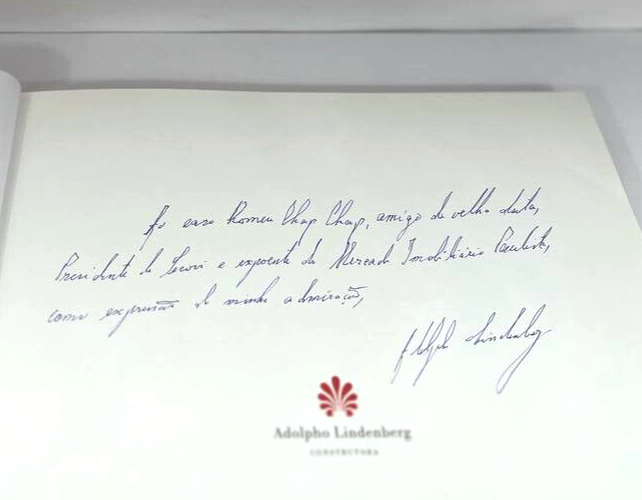 Ao caro Romeu Chap Chap, amigo de velha data,
Presidente do Secovi e expoente do Mercado Imobiliário Paulista,
como expressão de minha admiração,
Adolpho Lindenberg
Adolpho Lindenberg
CONSTRUTORA